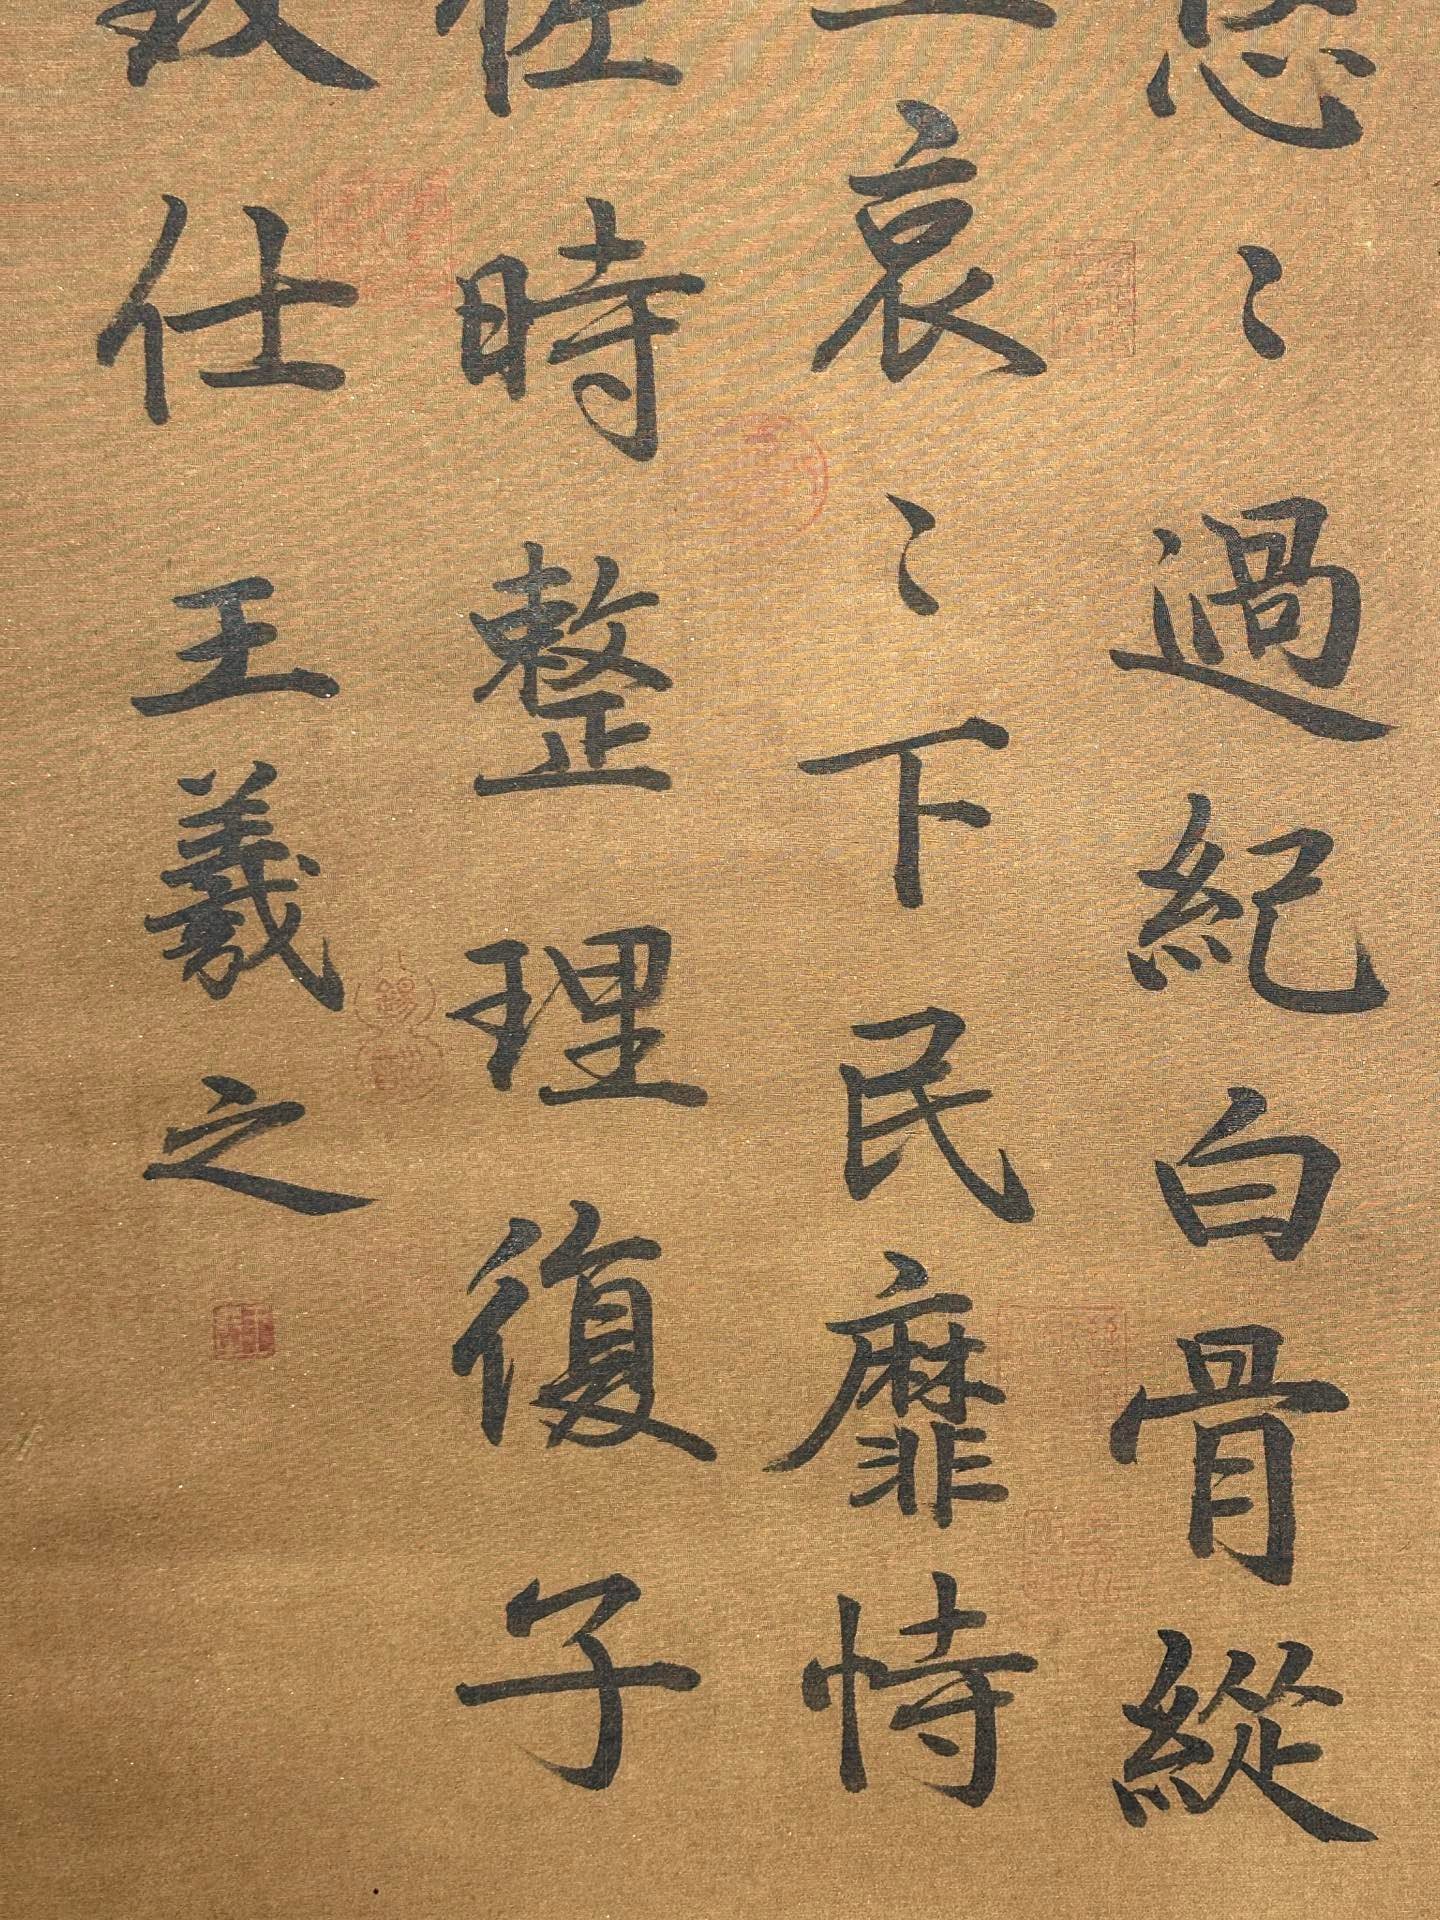 悠〻過紀白骨縱
哀〻下民靡恃
時整理復子
仕王羲之